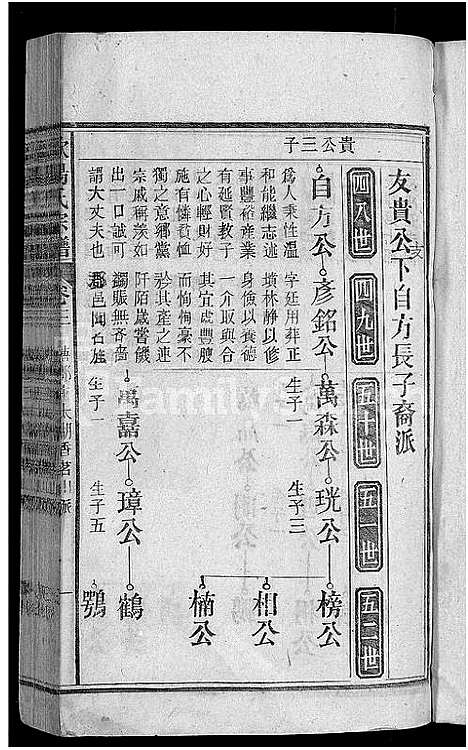 友貴公支下自方長子裔派
四八世
四九世
五十世
五一世
五二世
貴公三子
自方公 彥銘公 萬森公 珖公 榜公
相公
楠公
為人秉性溫
和能繼志述
事豐裕產業
有延賢教子
之心輕財好
施有憐貧恤
獨之意鄉黨
宗戚稱羨如
出一口誠可
謂大丈夫也
字廷用葬正
墳林靜以修
身儉以養德
一介取與合
其宜歲豐腴
而恂恂毫不
矜其產之連
阡陌歲嘗饑
蠲賑無吝嗇
郡邑聞名焉
生子一
生子三
萬嘉公 璋公 鶴
鶚
生子一
生子五
氏宗譜